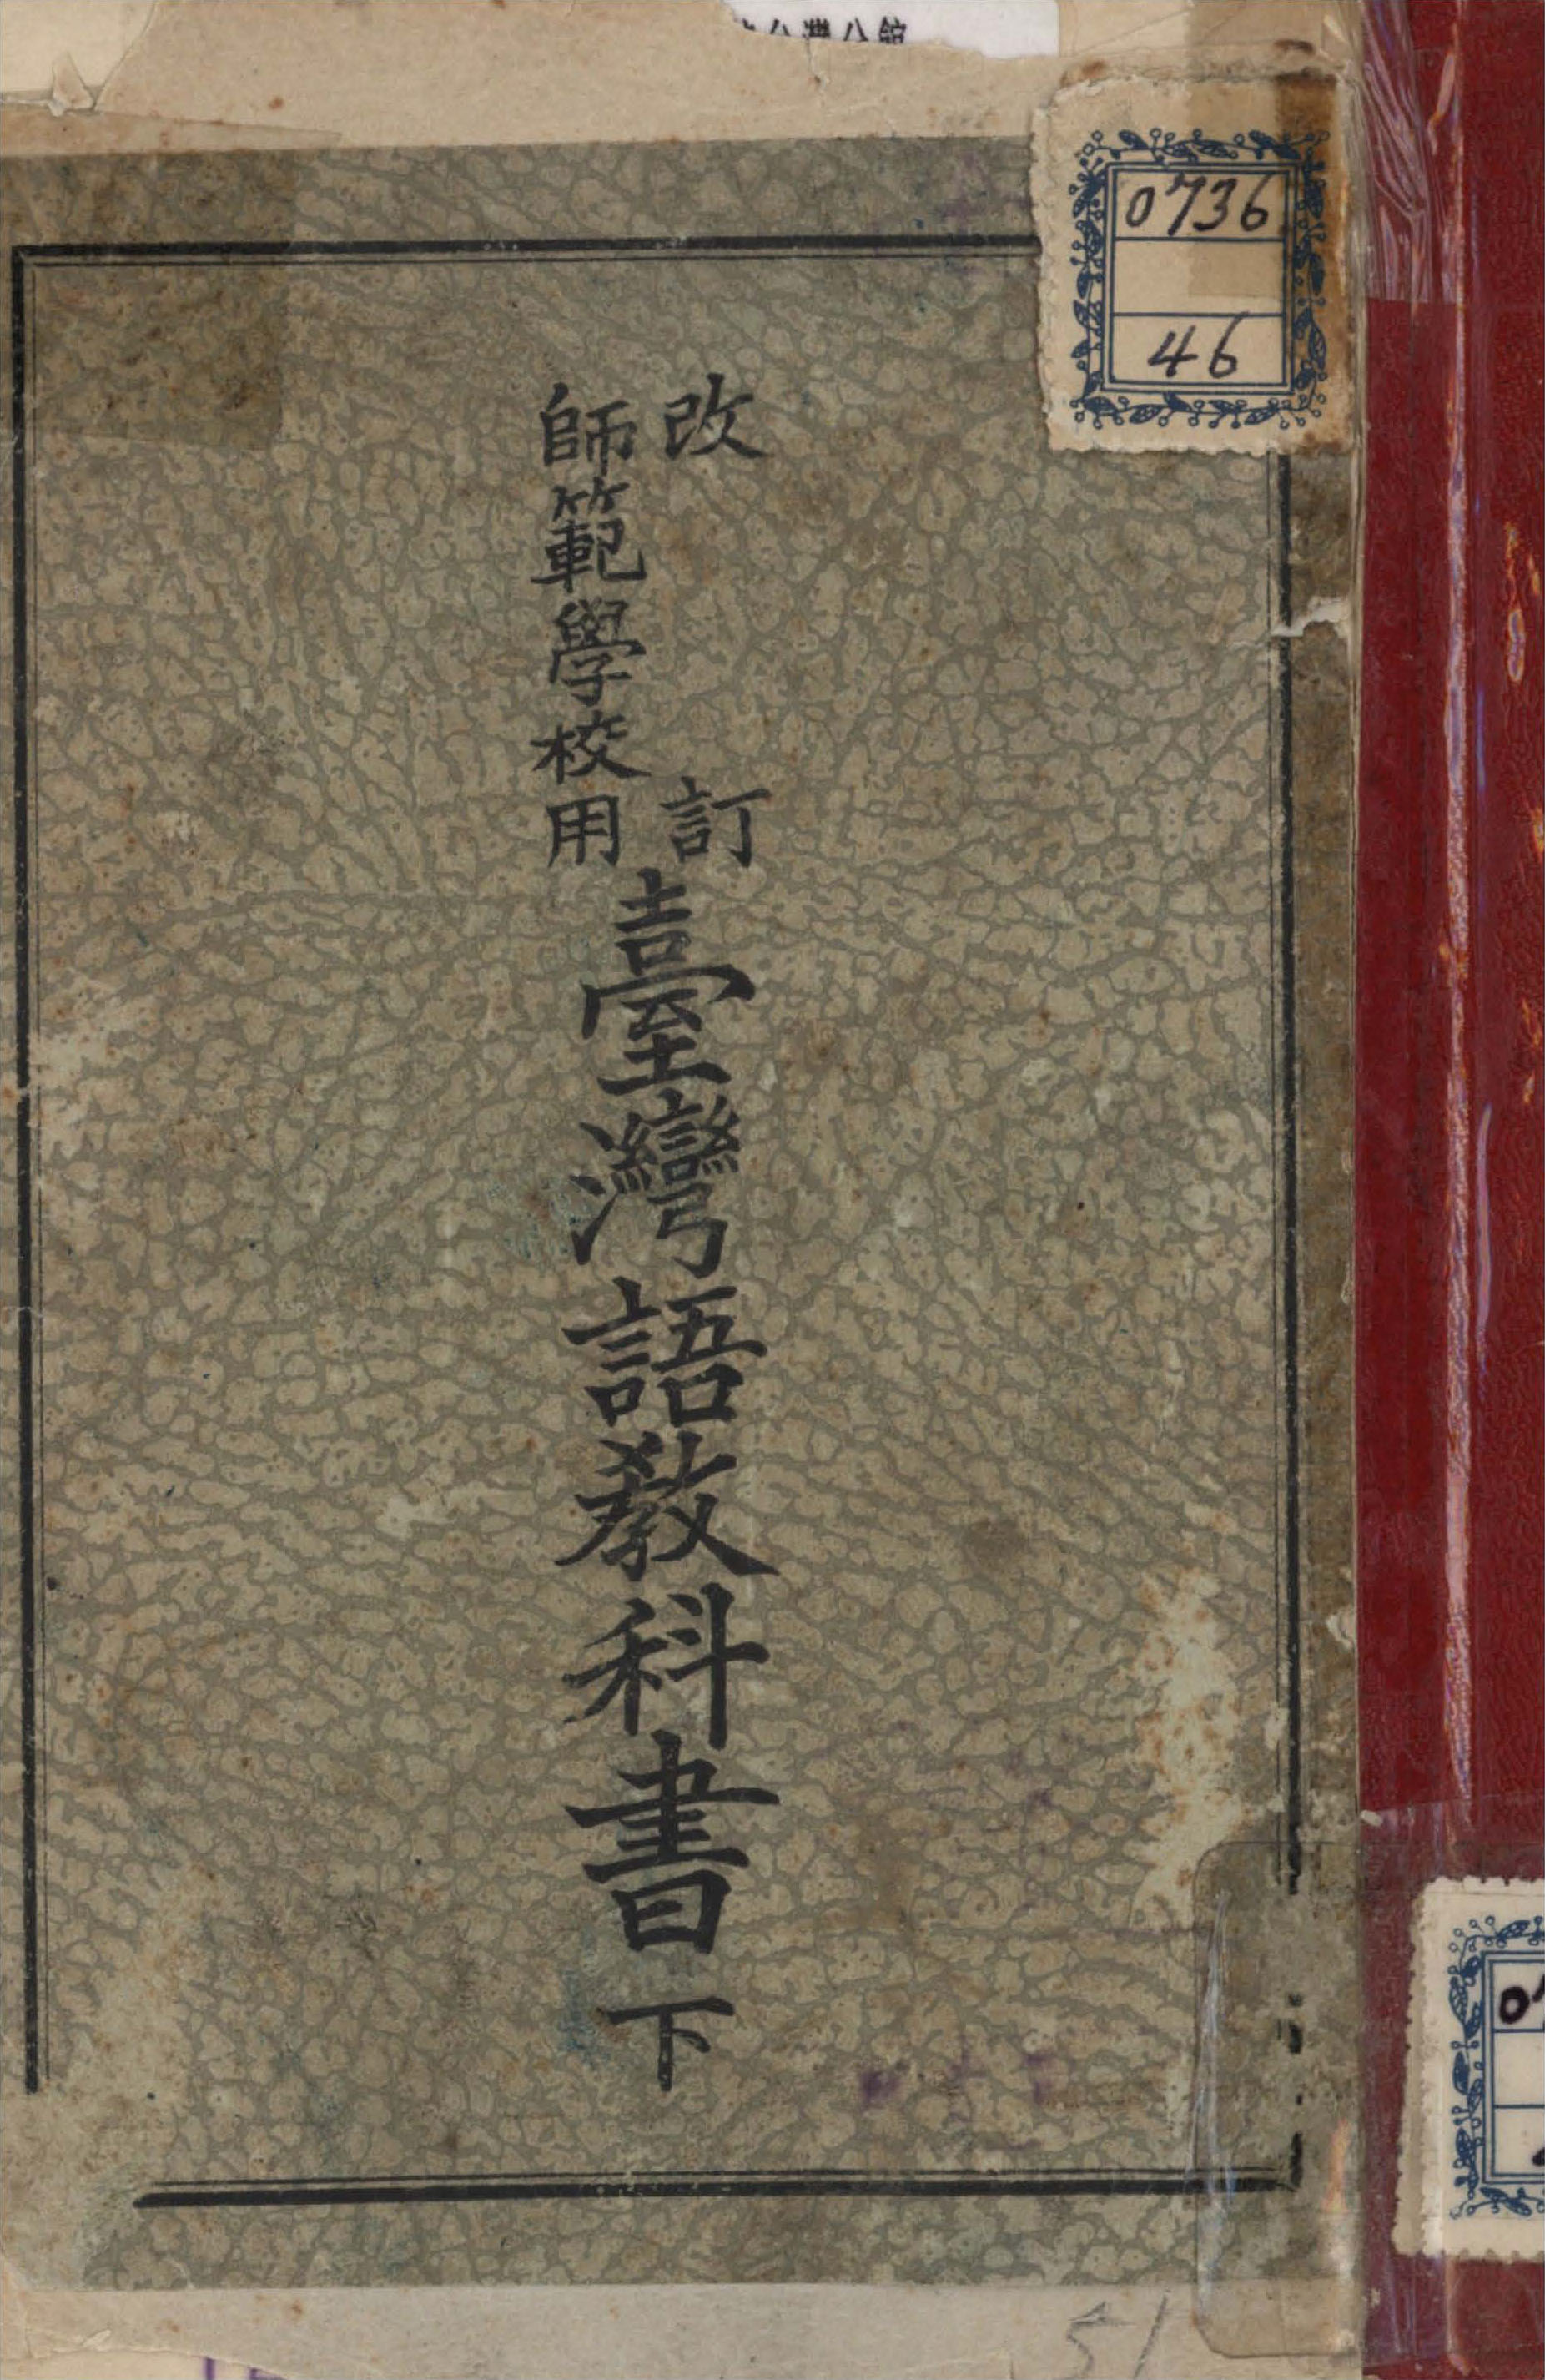 0736
46
改訂
師範學校用
臺灣語教科書 下
51